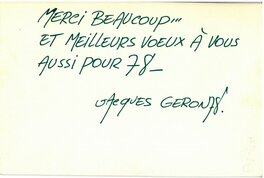 MERCI BEAUCOUP...
ET MEILLEURS VOEUX À VOUS
AUSSI POUR 78_
JACQUES GERON78!